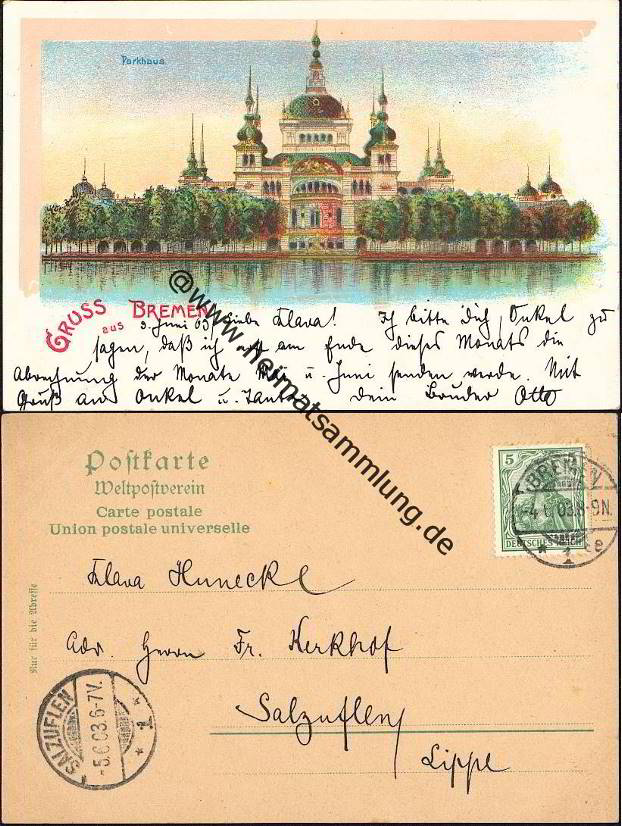 Parkhaus
GRUSS aus BREMEN
3. Juni 03. Liebe Klara! Ich bitte Dich, Onkel zu
sagen, daß ich erst am Ende dieses Monats die
Abrechnung der Monate Mai u. Juni senden werde. Mit
Gruß an Onkel u. Tante Dein Bruder Otto
@www.heimatsammlung.de
Postkarte
Weltpostverein
Carte postale
Union postale universelle
5
DEUTSCHES REICH
BREMEN
-4.6.03.8-9N.
* 1 e
Nur für die Adresse
Klara Hunecke
Adr. Herrn Fr. Kerkhof
Salzuflen
Lippe
SALZUFLEN
-5.6.03.6-7V.